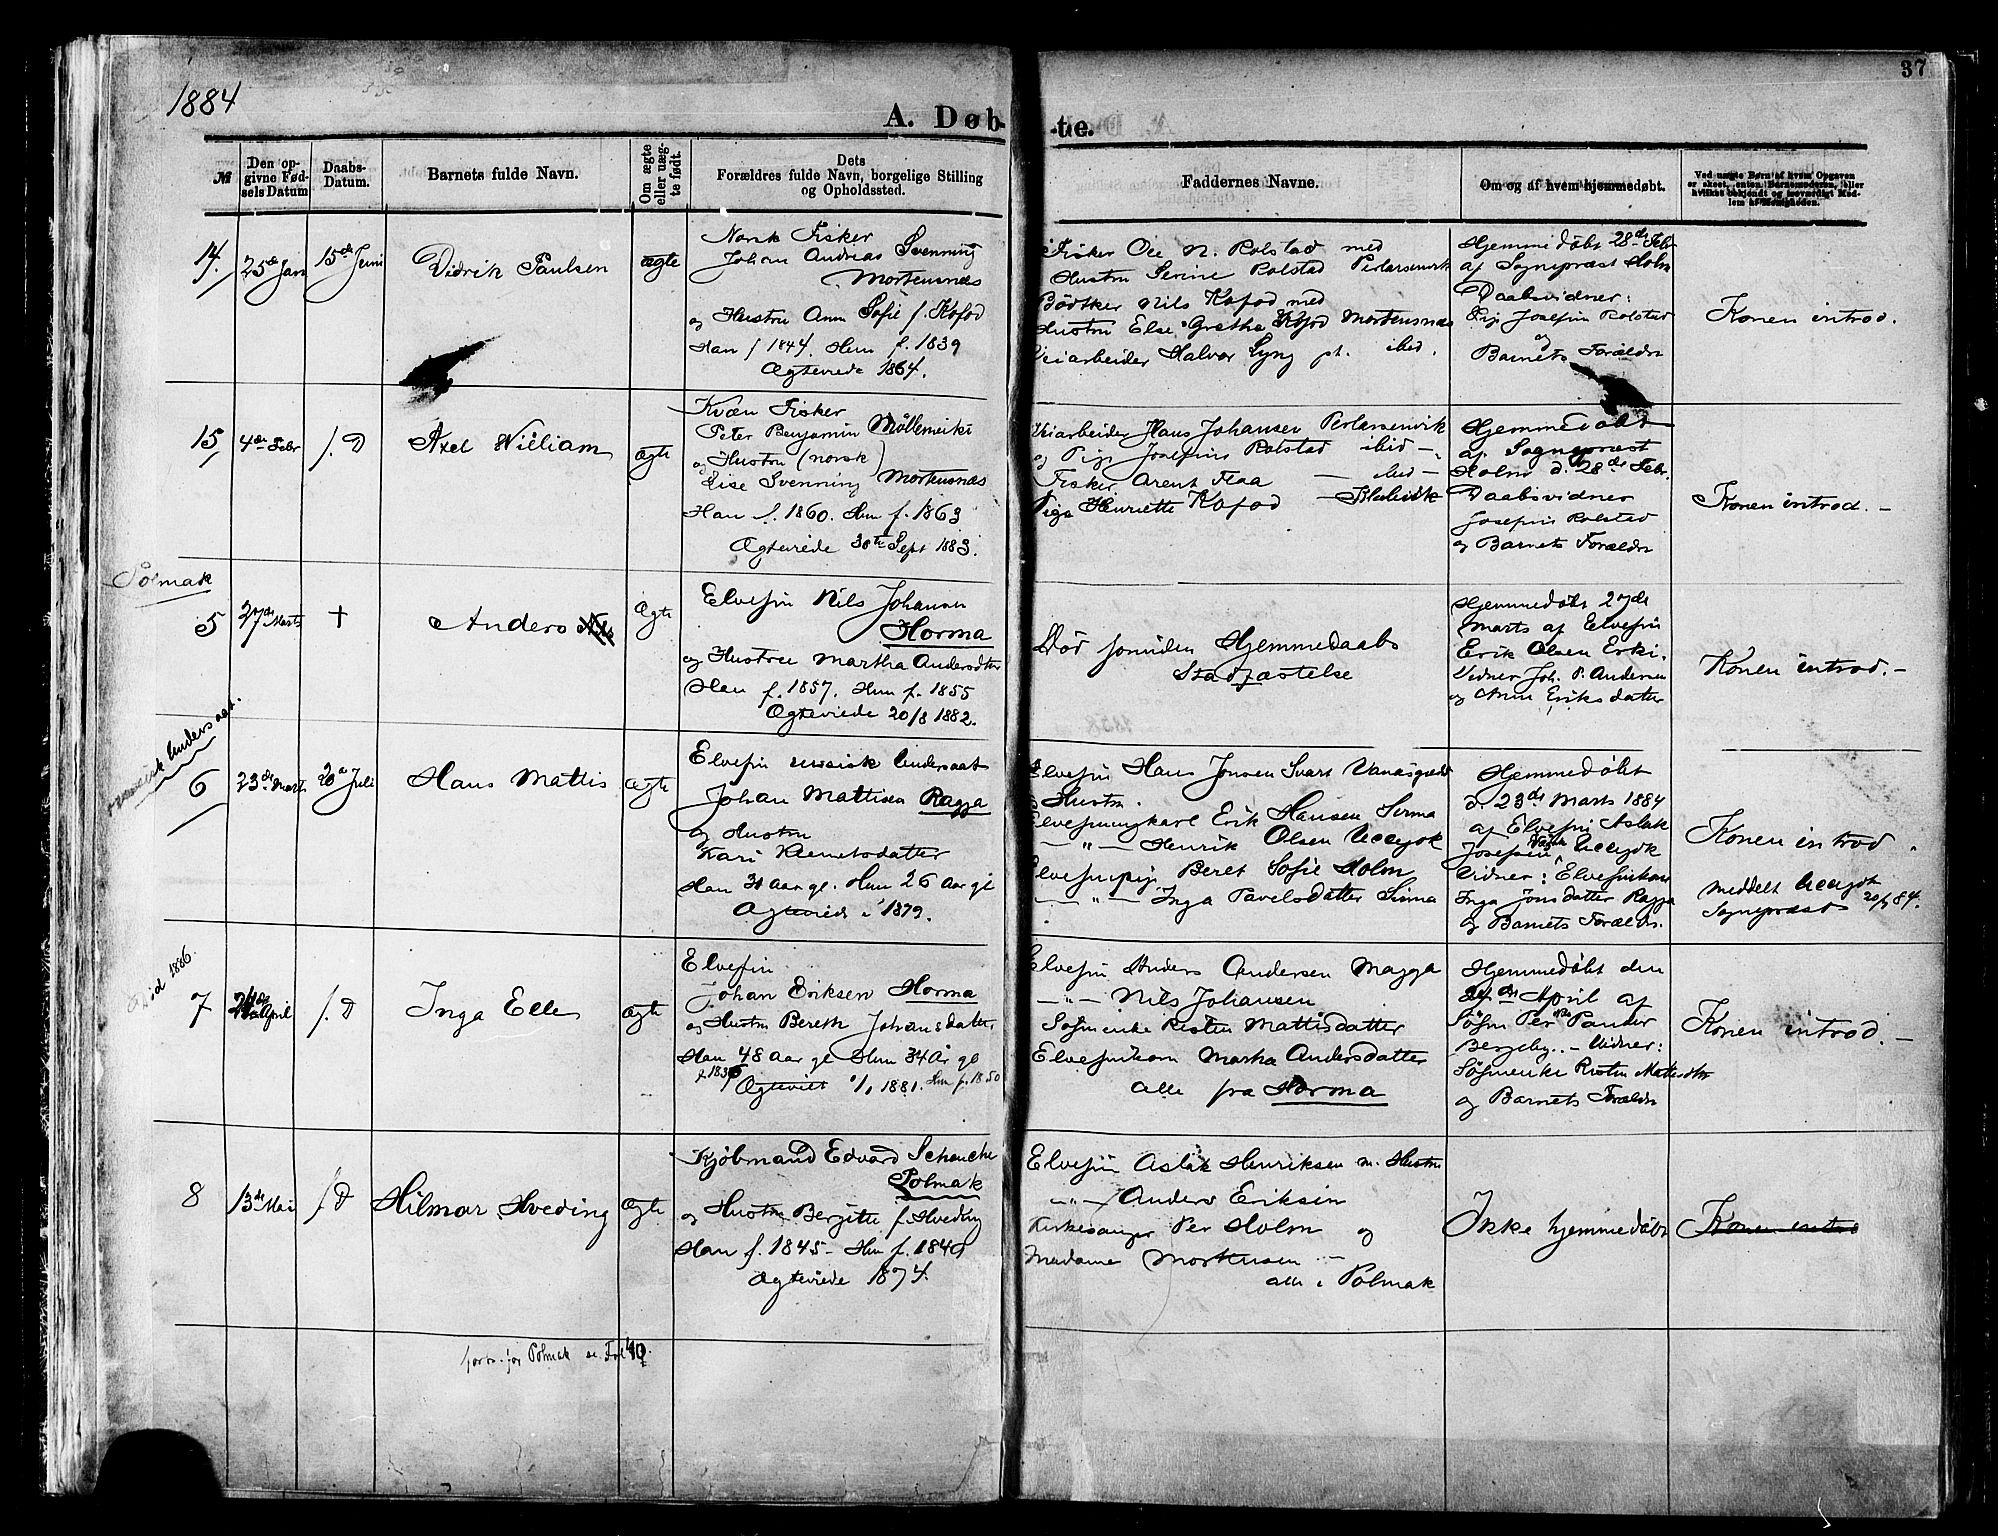 37
1884
A. Døb-
-te.
№
Den op-
givne Fød-
sels Datum
Daabs-
Datum.
Barnets fulde Navn.
Om ægte
eller uæg-
te født.
Dets
Forældres fulde Navn, borgelige Stilling
og Opholdssted.
Faddernes Navne.
Om og af hvem hjemmedøbt.
Ved uægte Børn af hvem Opgaven
er skeet, enten Barnemoderen, eller
hvilket bekjendt og troværdigt Med-
lem af Menigheden.
14
25de Jan
15de Juni
Didrik Paulsen
ægte
Norsk Fisker
Johan Andreas Svenning
Mortensnæs
og Hustru Anna Sofie f. Kofod
Han f 1844. Hun f. 1839
Ægteviede 1864.
Fisker Ole N. Rolstad med
Hustru Serine Rolstad Perlarsenvik
Bødtker Nils Kofod med
Hustru Else Grethe Kofod Mortensnæs
Veiarbeider Halvor Lyng pt. ibid.
Hjemmedøbt 28de Febr
af Sognepræst Holm
Daabsvidner:
Pig Josefin Rolstad
og
Barnets Forældre
Konen introd.
15
4de Febr
f. D
Axel William
Ægte
Kvæn Fisker
Peter Benjamin Møllemeiki
og Hustru (norsk)
Else Svenning Mortensnæs
Han f. 1860. Hun f. 1863
Ægteviede 30te Sept 1883.
Veiarbeider Hans Johansen Perlarsenvik
og Pige Josefine Rolstad ibid -
Fisker Arent Flaa - ibid -
Pige Henriette Kofod -
Hjemmedøbt
af Sognepræst
Holm d. 28de Febr.
Daabsvidner
Josefin Rolstad
og Barnets Forældre
Konen introd. -
Polmak
5
27de Marts
+
Anders
Ægte
Elvefin Nils Johansen
Horma
og Hustru Martha Andersdtter
Han f. 1857. Hun f. 1855
Ægteviede 20/8 1882.
Død forinden Hjemmedaabs
Stadfæstelse
Hjemmedøbt 27de
Marts af Elvefin
Erik Olsen Erki.
Vidner Joh. P. Andersen
og Anne Eriksdatter
Konen introd. -
russisk Undersaat.
6
23de Marts
20de Juli
Hans Mattis
Ægte
Elvefin russisk Undersaat
Johan Mattisen Ragja
og Hustru
Kari Klemetsdatter
Han 31 Aar gl. Hun 26 Aar gl
Ægteviede i 1879.
Elvefin Hans Jonsen Svart
& Hustru.
Elvefinungkarl Erik Hansen Sirma
-"- Henrik Olsen Utsjok
Elvefinpige Beret Sofie Holm
-"- Inga Pavelsdatter Sirma
Hjemmedøbt
d. 23de Marts 1884
af Elvefin Aslak
Josefsen Utsjok
Vidner: Elvefinkone
Inga Jonsdatter Ragja
og Barnets Forældre.
Konen introd.
Meddelt Utsjok
Sognepræst 20/7 84.
Død 1886.
7
24de April
f. D
Inga Elle
Ægte
Elvefin
Johan Eriksen Horma
og Hustru Bereth Johansdatter
Han 48 Aar gl Hun 34 År gl
f. 1836
Ægteviet 1881. Hun f. 1850
Elvefin Anders Andersen Magga
-"- Nils Johansen
Søfinenke Risten Mattisdatter
Elvefinkone Martha Andersdatter
alle fra Horma
Hjemmedøbt den
24de April af
Søfin Per Pander
Bergeby. - Vidner:
Søfinenke Risten Mattisdtr
og Barnets Forældre
Konen introd. -
8
13de Mai
f. D
Hilmar Hveding
Ægte
Kjøbmand Edvard Schanche
Polmak
og Hustru Bergitte f. Hveding
Han f. 1845 - Hun f. 1849
Ægteviede 1874.
Elvefin Aslak Henriksen m. Hustru
-"- Anders Eriksen
Kirkesanger Per Holm og
Madame Mortensen -
alle i Polmak
Ikke hjemmedøbt
Konen introd
forts. for Polmak se Fol 40.